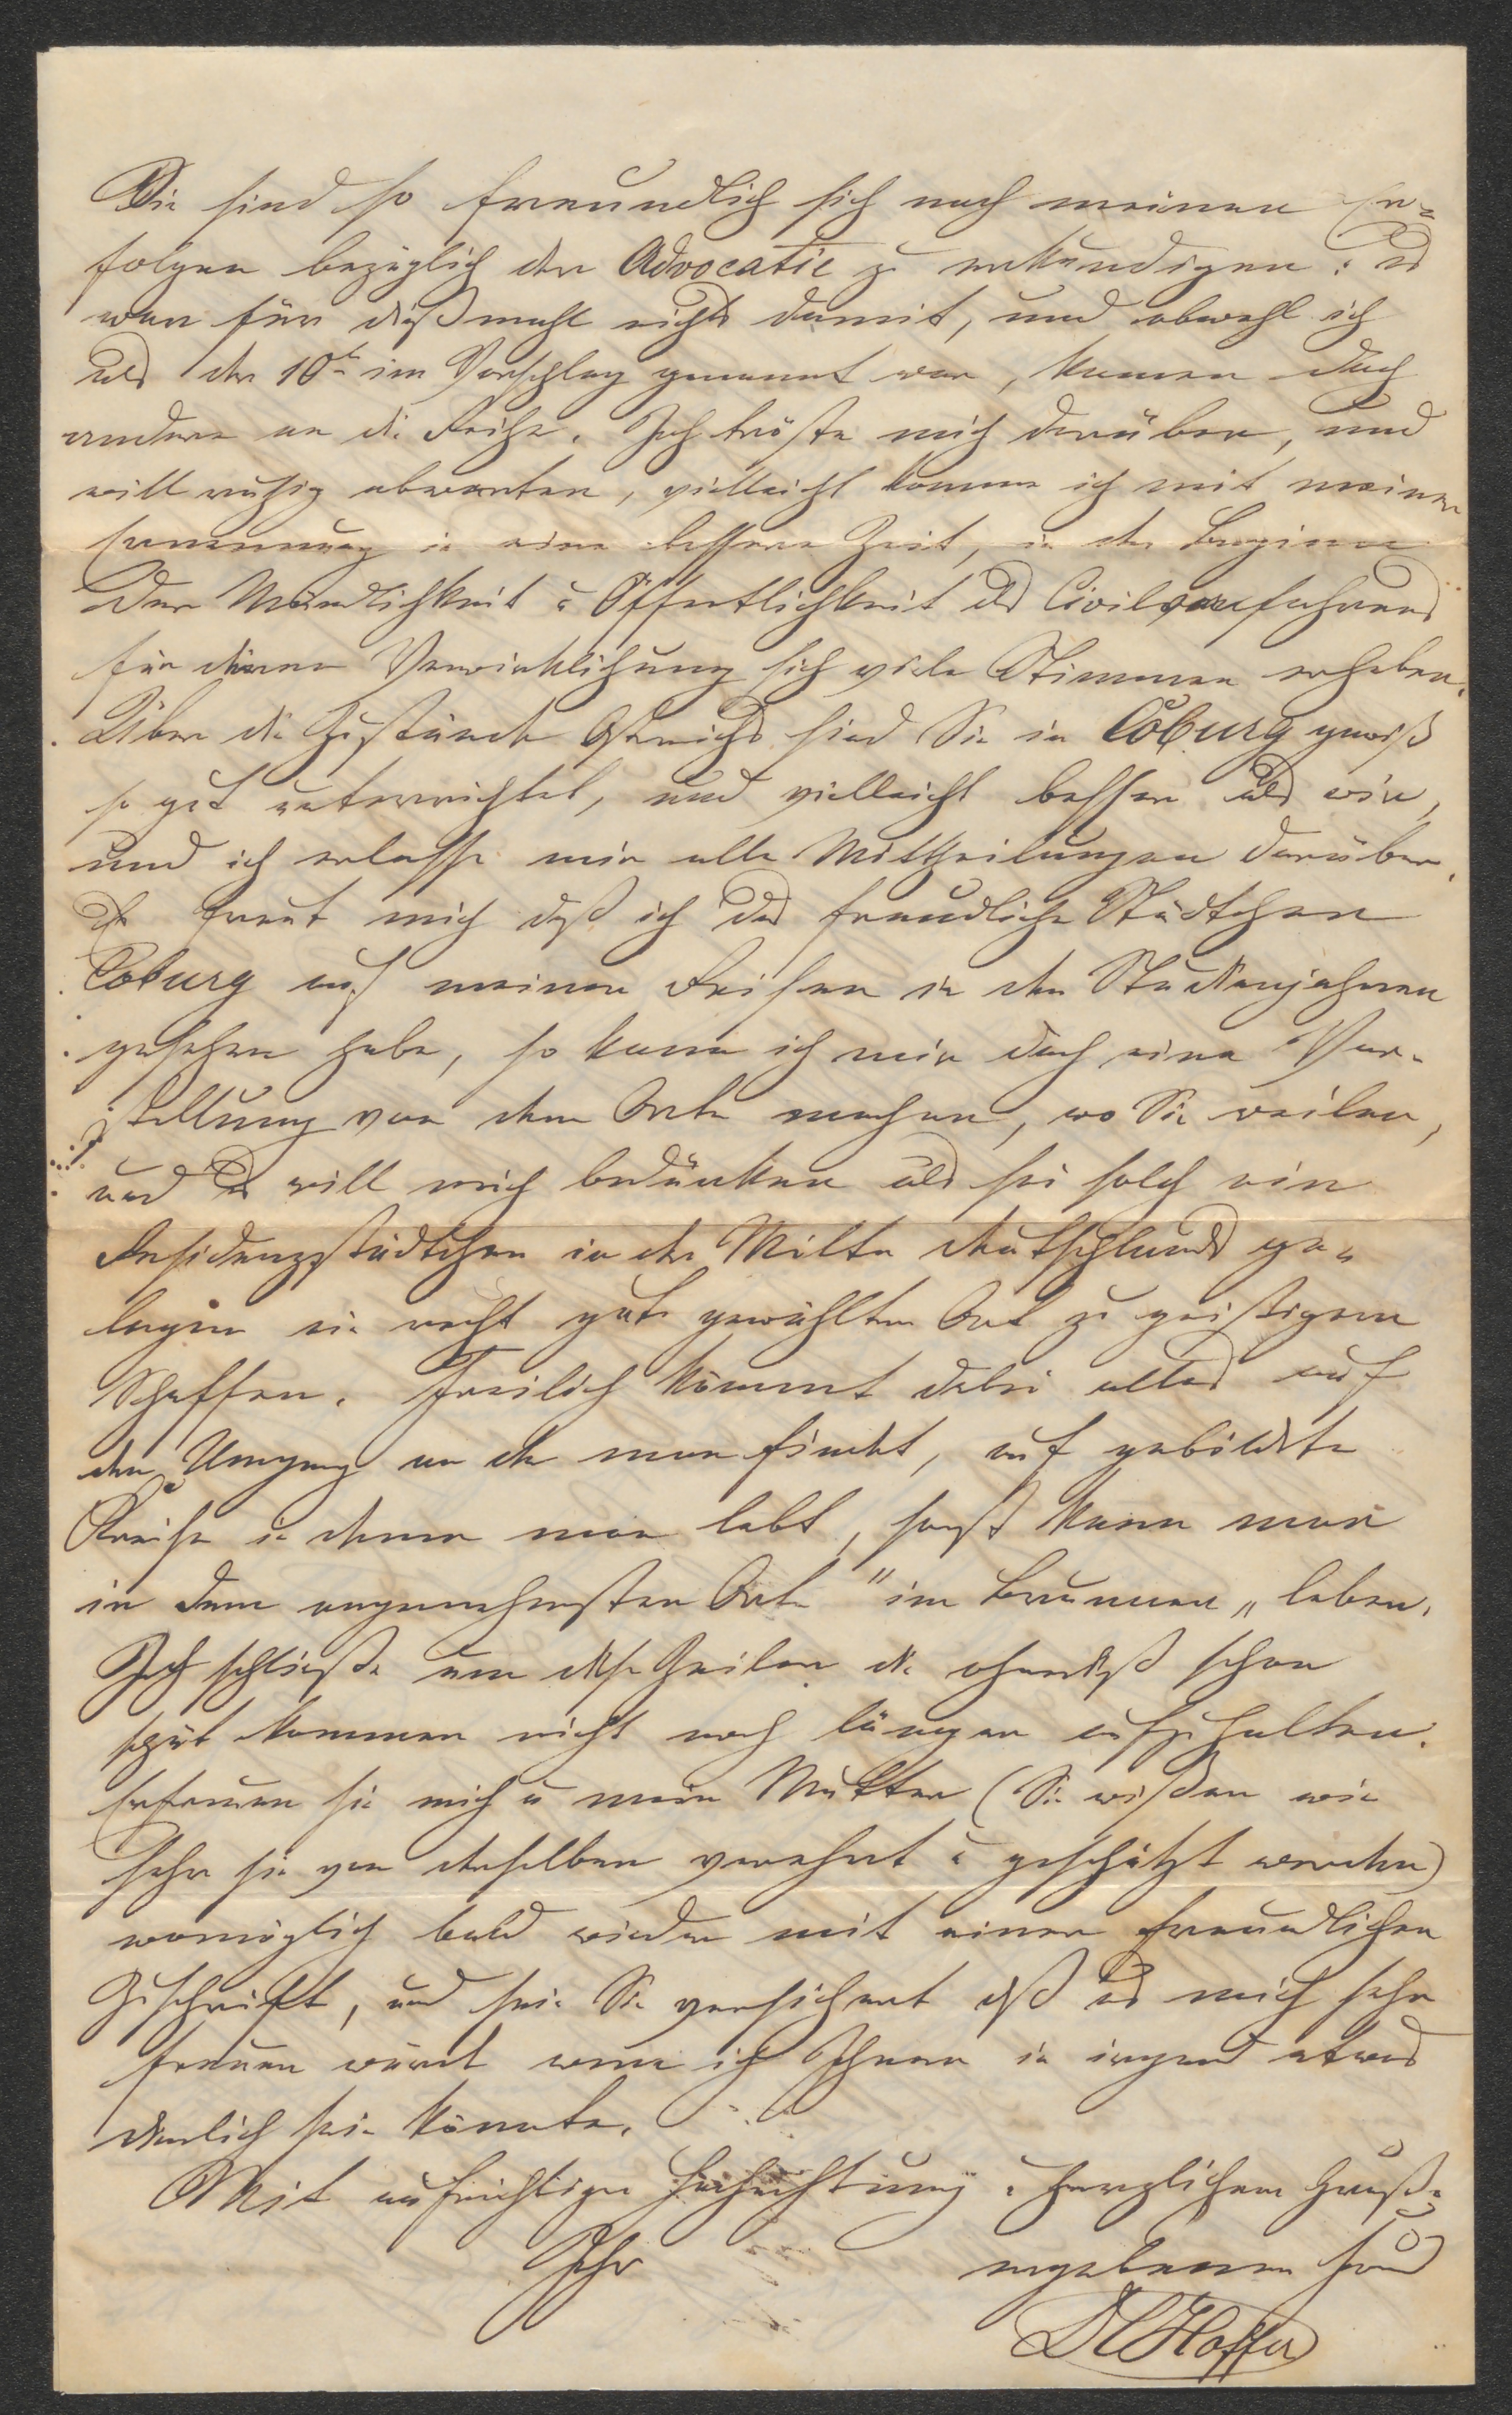 Sie sind so freundlich sich nach meinen Er-
folgen bezüglich der Advocatie zu erkundigen: es
war für dießmahl nichts damit, und obwohl ich
als der 10te im Vorschlag genannt war, kamen doch
andere an die Reihe. Ich tröste mich darüber, und
will ruhig abwarten, vielleicht komme ich mit meiner
Ernennung in eine bessere Zeit, in der Beginn
der Mündlichkeit u Öffentlichkeit des Civilverfahrens
für deren Verwirklichung sich viele Stimmen erheben.
Über die Zustände Östreichs sind Sie in Coburg gewiß
so gut unterrichtet, und vielleicht besser als wir,
und ich erlasse mir alle Mittheilungen darüber.
Es freut mich daß ich das freundliche Städtchen
Coburg auf meinen Reisen in den Studienjahren
gesehen habe, so kann ich mir doch eine Vor-
stellung von dem Orte machen, wo Sie weilen,
und es will mich bedünken als sei solch ein
Residenzstädtchen in der Mitte Deutschlands ge-
legen ein recht gut gewählter Ort zu geistigem
Schaffen. Freilich kömmt dabei alles auf
den Umgang an den man findet, auf gebildete
Kreise in denen man lebt, sonst kann man
in dem angenehmsten Orte "im Brunnen" leben.
Ich schließe um diese Zeilen die ohnedieß schon
spät kommen nicht noch länger aufzuhalten.
Erfreuen sie mich u meine Mutter (Sie wissen wie
sehr sie von derselben verehrt u geschätzt werden)
womöglich bald wieder mit einer freundlichen
Zuschrift, und sein Sie versichert daß es mich sehr
freuen würde wenn ich Ihnen in irgend etwas
dienlich sein könnte.
Mit aufrichtiger Hochachtung u herzlichem Gruße
Ihr ergebener Freund
Hoffer